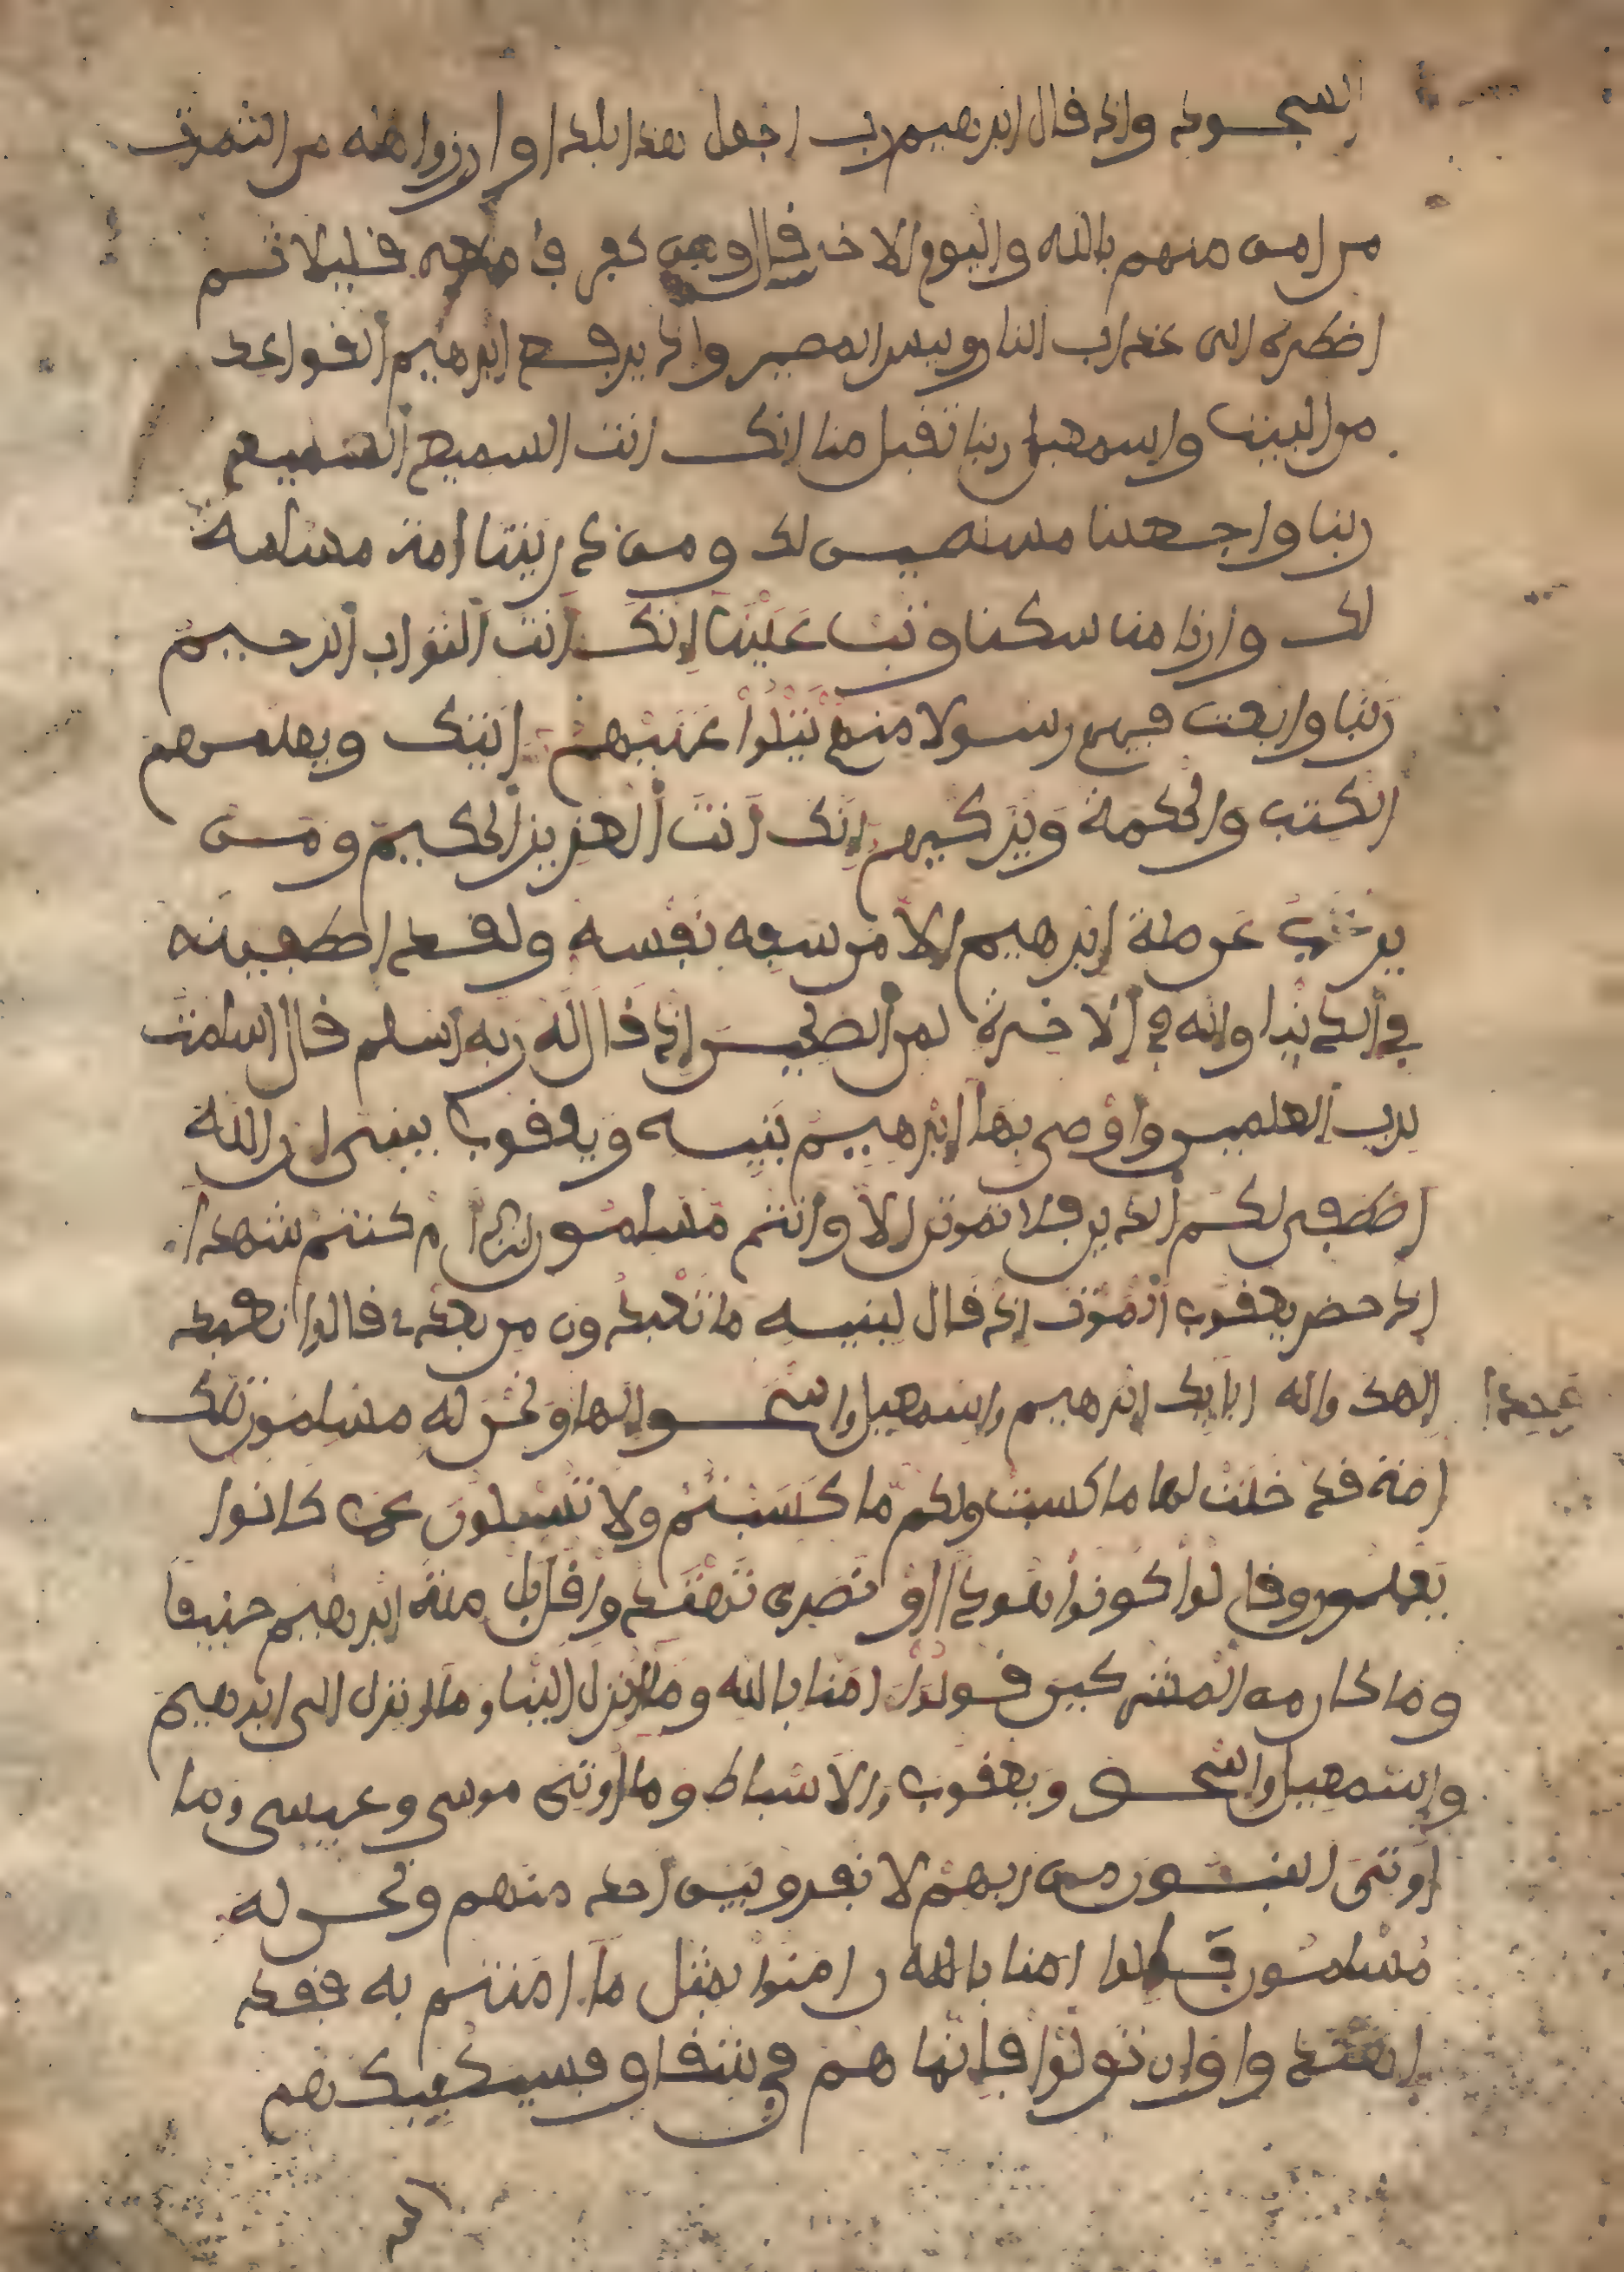 السجود واذ قال ابرهيم رب اجعل هذا بلدا وارزق اهله من الثمرت
من امن منهم بالله واليوم الاخر قال ومن كفر فا قليلا ثم
اضطره الى عذاب النار وبيس المصير واذ يرفع ابرهيم القواعد
من البيت واسمعيل ربنا تقبل منا انك انت السميع العليم
ربنا واجعلنا مسلمين لك ومن ذريتنا امة مسلمة
لك وارنا مناسكنا وتب عَلَيْنَا إِنَّكَ أَنتَ التَّوَّاب الرحيم
رَبَّنَا وابعث فيهم رسولا منهم يَتْلُوا عَلَيْهِم ايتك ويعلمهم
الكتب والحكمة وَيُزَكيهم إِنَّك أَنتَ العزيز الحكيم ومن
يرغب عن ملة ابرهيم إلا من سفه نفسه ولقد اصطفينه
في الدنيا وانه في الاخرة لمن الصلحين إذ قَالَ لَهُ رَبه أسلم قال اسلمت
لرب العلمين وَأَوْصى بها إِبْرهيم بَنِيه ويعقوب يبنى ان الله
اصطفى لكم الدين فلا تموتن إلا وانتم مسلمون ام كنتم شهدا
إذ حضر يعقوب الموت إذ قال لبنيه ما تَعْبدون من بعدي قالوا نعبد
إلهك واله ابايك إبرهيم وإسمعيل وإسحق إلها وَنحْنُ له مسلمون تلك
امة قد خلت لها ما كسبت ولكم مَّا كَسَبْتُمْ ولا تُسْـَٔلُونَ عما كانوا
يَعملون وقالوا كُونُوا هودا أَوْ نَصرى تَهْتَدوا قُل بَل ملة ابرهيم حنيفا
وما كان من المشركين قولوا امنا بالله وما أنزل إلينا وما أنزل الى ابرهيم
وإسمعيل وإسحق ويعقوب والاسباط وما أوتي موسى وعيسى وما
أوتي النبيـون من ربهم لا نفرق بين أحد منهم ونحن له
مُسْلمون امنا بالله امنوا بمثل مَا امنتم به فقد
اهتدوا وإن تَولوْا فإنما هم في شقاق فسيكفيكهم
الله